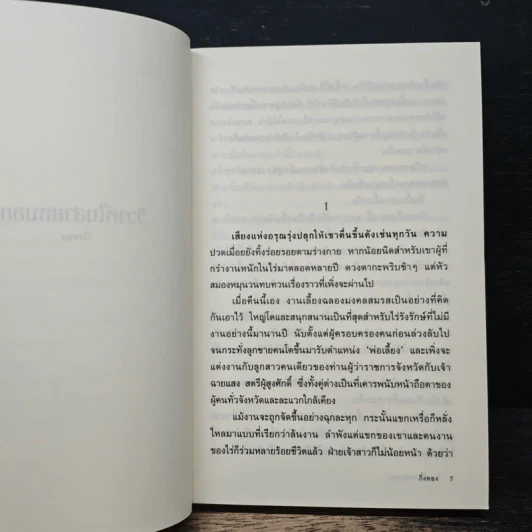 1
เสียงแห่งอรุณรุ่งปลุกให้เขาตื่นขึ้นดังเช่นทุกวัน ความ
ปวดเมื่อยยังทิ้งร่องรอยตามร่างกาย หากน้อยนิดสำหรับเขาผู้ที่
กรำงานหนักในไร่มาตลอดหลายปี ดวงตากะพริบช้าๆ แต่หัว
สมองหมุนวนทบทวนเรื่องราวที่เพิ่งจะผ่านไป
เมื่อคืนนี้เอง งานเลี้ยงฉลองมงคลสมรสเป็นอย่างที่คิด
กันเอาไว้ ใหญ่โตและสนุกสนานเป็นที่สุดสำหรับไร่รังรักษ์ที่ไม่มี
งานอย่างนี้มานานปี นับตั้งแต่ผู้ครอบครองคนก่อนล่วงลับไป
จนกระทั่งลูกชายคนโตขึ้นมารับตำแหน่ง 'พ่อเลี้ยง' และเพิ่งจะ
แต่งงานกับลูกสาวคนเดียวของท่านผู้ว่าราชการจังหวัดกับเจ้า
ฉายแสง สตรีผู้สูงศักดิ์ ซึ่งทั้งคู่ต่างเป็นที่เคารพนับหน้าถือตาของ
ผู้คนทั่วจังหวัดและละแวกใกล้เคียง
แม้งานจะถูกจัดขึ้นอย่างฉุกละหุก กระนั้นแขกเหรื่อก็หลั่ง
ไหลมาแบบที่เรียกว่าล้นงาน ลำพังแต่แขกของเขาและคนงาน
ของไร่ก็ร่วมหลายร้อยชีวิตแล้ว ฝ่ายเจ้าสาวก็ไม่น้อยหน้า ด้วยว่า
กิ่งทอง 7